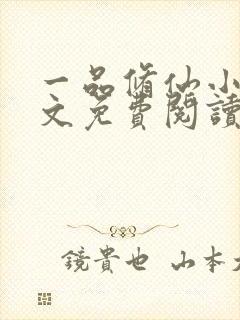 一品脩仙小
文免費閱讀
鏡貴也 山本